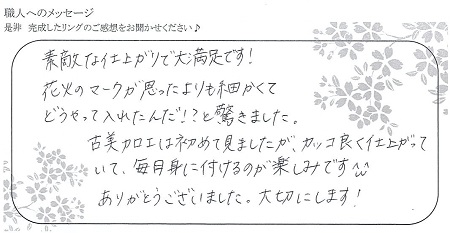 職人へのメッセージ
是非 完成したリングのご感想をお聞かせください♪
素敵な仕上がりで大満足です!
花火のマークが思ったよりも細かくて
どうやって入れたんだ!?と驚きました。
古美加工は初めて見ましたが、カッコ良く仕上がって
いて、毎日身に付けるのが楽しみです^^
ありがとうございました。大切にします!